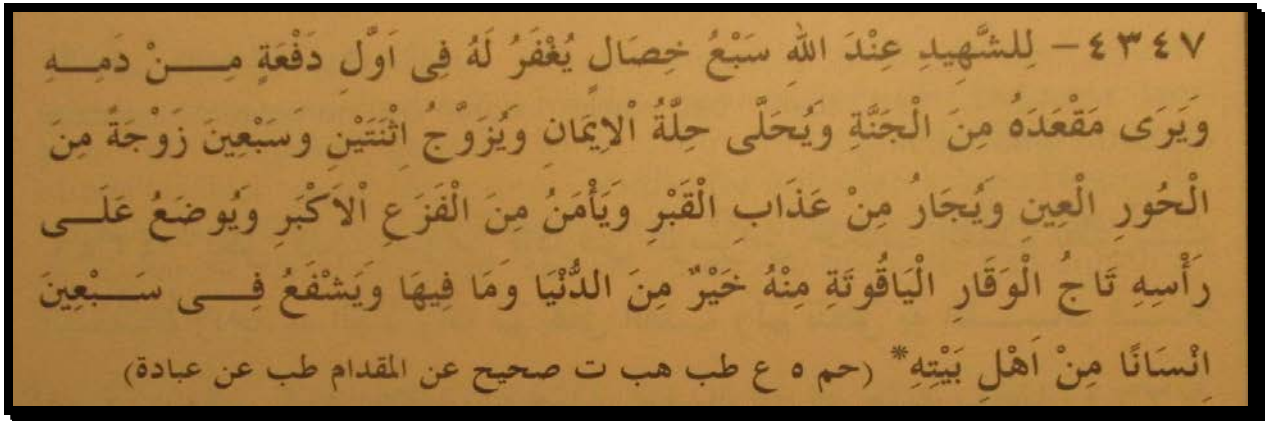 ٤٣٤٧ – لِلشَّهِيدِ عِنْدَ اللهِ سَبْعُ خِصَالٍ يُغْفَرُ لَهُ فِى اَوَّلِ دَفْعَةٍ مِـــنْ دَمِـــهِ
وَيَرَى مَقْعَدَهُ مِنَ الْجَنَّةِ وَيُحَلَّى حِلَّةُ الْاِيمَانِ وَيُزَوَّجُ اثْنَتَيْنِ وَسَبْعِينَ زَوْجَةً مِنَ
الْحُورِ الْعِينِ وَيُجَارُ مِنْ عَذَابِ الْقَبْرِ وَيَأْمَنُ مِنَ الْفَزَعِ الْاَكْبَرِ وَيُوضَعُ عَلَـــى
رَأْسِهِ تَاجُ الْوَقَارِ الْيَاقُوتَةِ مِنْهُ خَيْرٌ مِنَ الدُّنْيَا وَمَا فِيهَا وَيَشْفَعُ فِـــى سَـــبْعِينَ
اِنْسَانًا مِنْ اَهْلِ بَيْتِهِ* (حم ه ع طب هب ت صحيح عن المقدام طب عن عبادة)